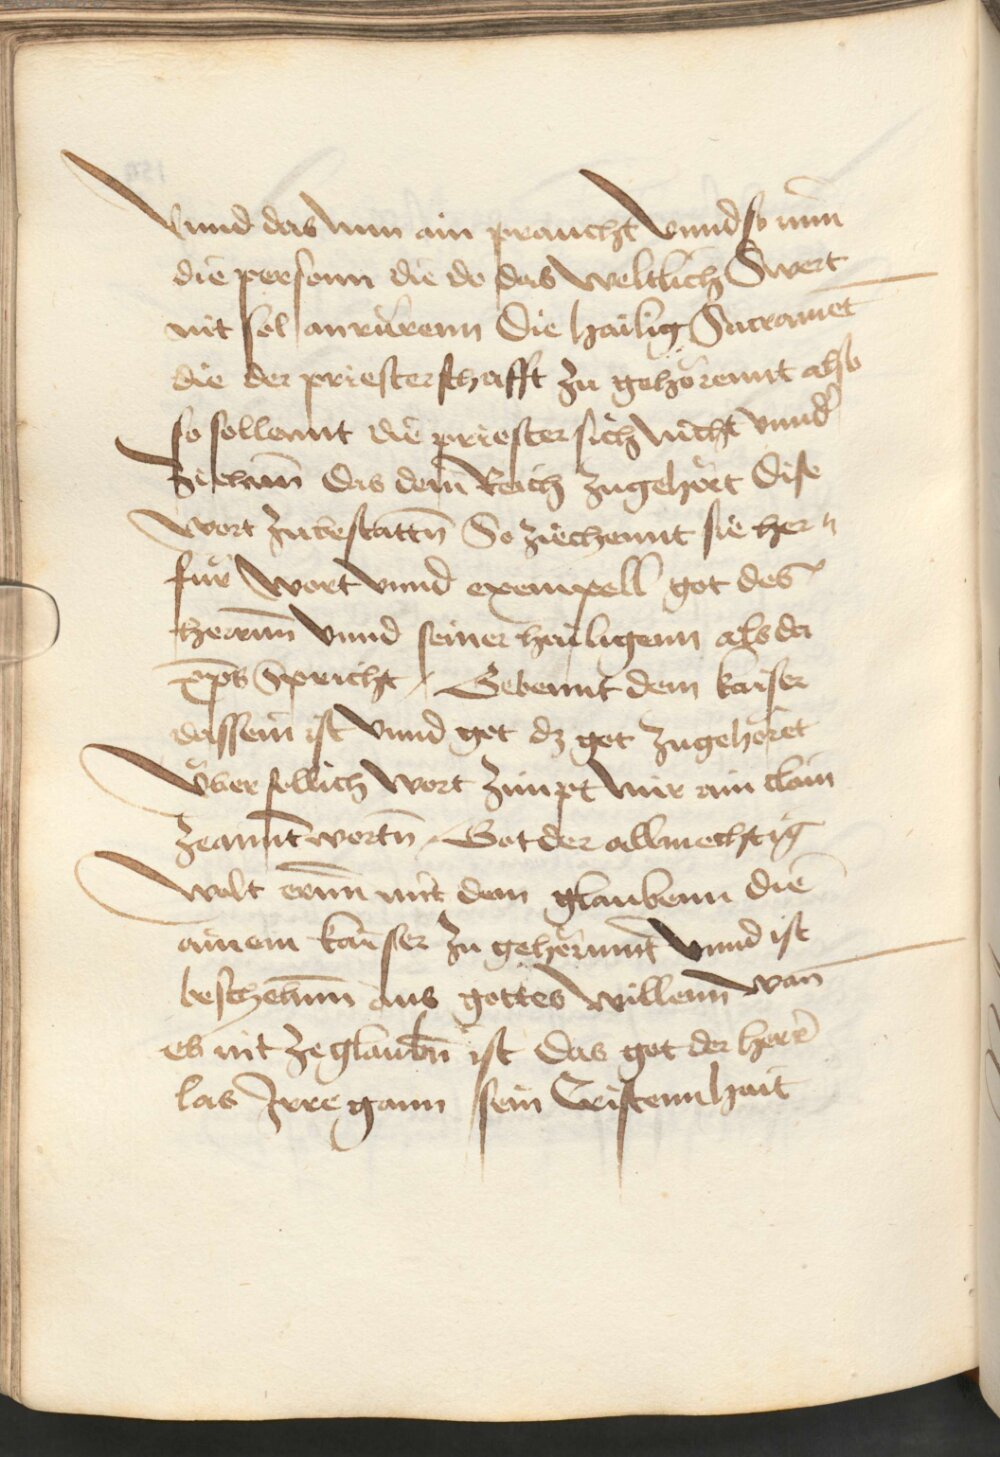 Vnnd das Nun ain praucht Vnnd so nim̄
die personn die do das Weltlich Swert
nit sol anrürenn Die hailig Sacramet
die der priesterschafft zu gehörennt also
so sollennt die priester sich Nicht vnnd
ziehen̄ das dem Reich zugehört Dise
Wort zubestattn̄ So ziechennt sie her
für Wort Vnnd exempell got des
Herrnn̄ Vnnd seiner heiligenn als da
xp̄s Spricht / Gebennt dem kaiser
dassein ist Vnnd got dz got zugehöret
Vber sollich Wort zimpt mir ain clain
zeannt wortn̄ / Got der allmechtig
Wolt ernn̄ mit dem glaubenn die
ainem kaisser zu gehörnnt Vnnd ist
beschehnn̄ aus gottes Willenn wan̄
es nit ze glaubn̄ ist das got der herr
las Irre gann sein Cristennhait